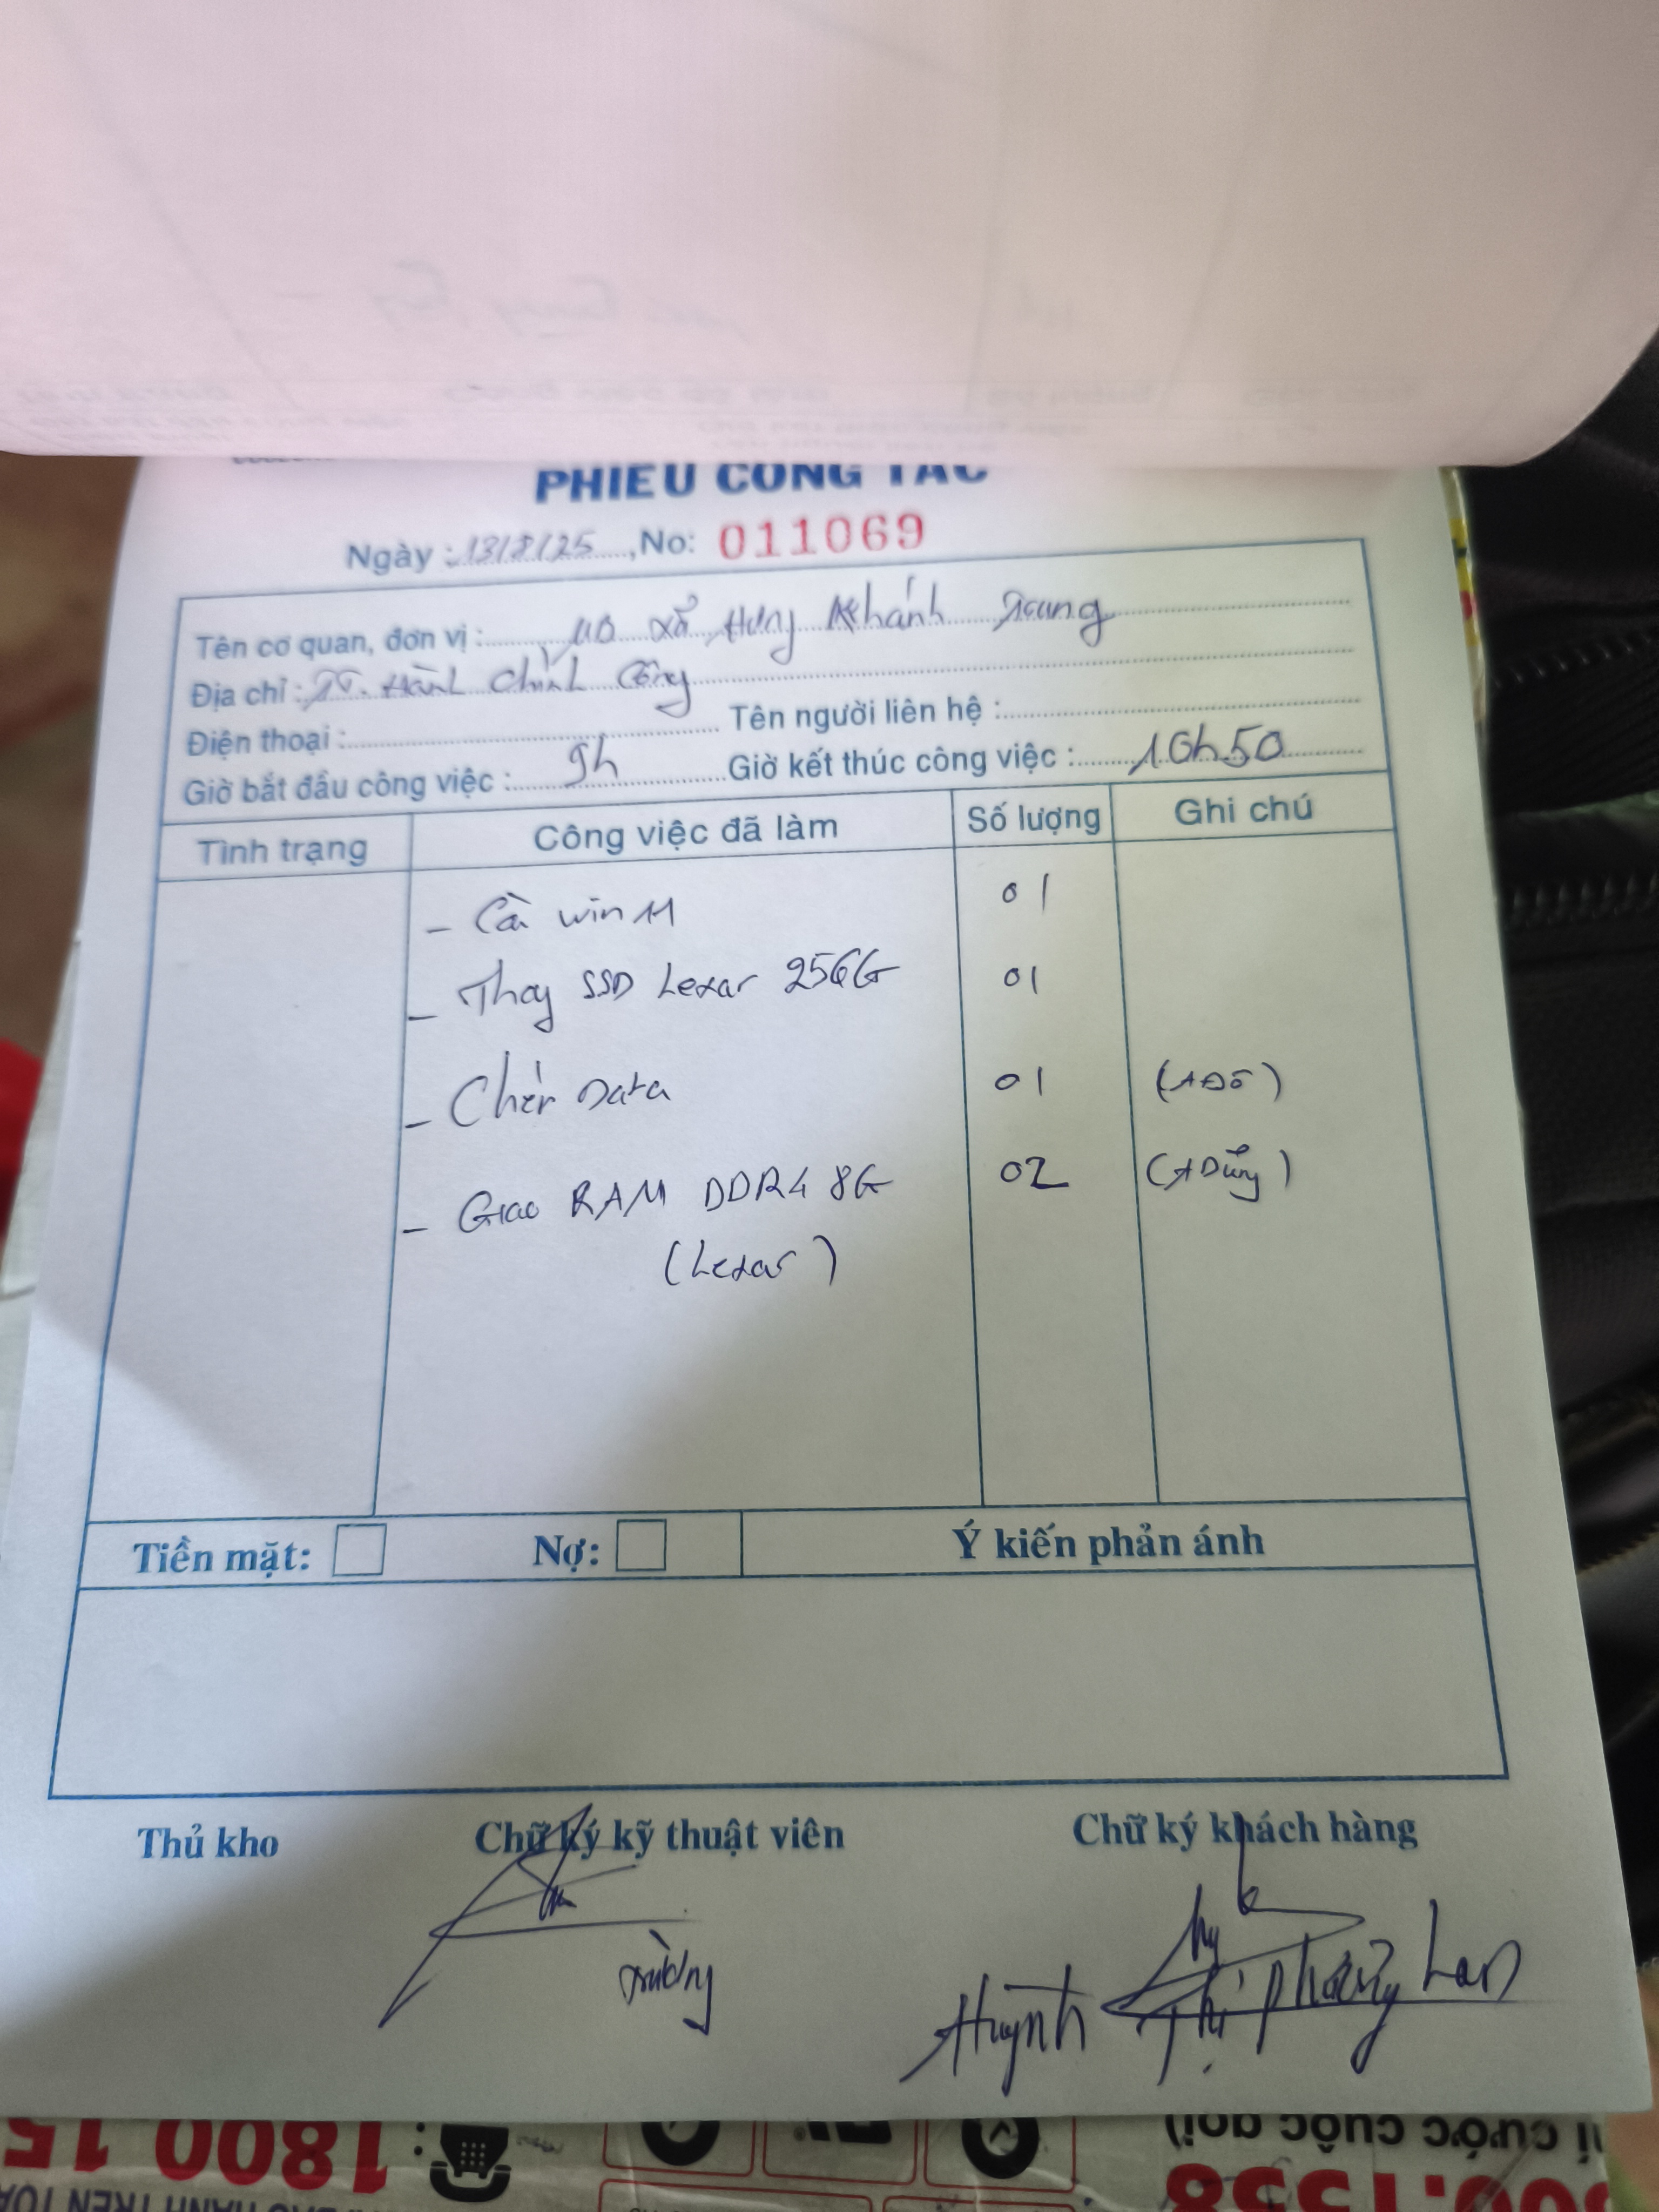 PHIẾU CÔNG TÁC
Ngày : 13/8/25 , No: 011069
Tên cơ quan, đơn vị : UB xã Hưng Khánh Trung
Địa chỉ : TT. Hành Chính Công
Điện thoại : Tên người liên hệ :
Giờ bắt đầu công việc : 9h Giờ kết thúc công việc : 10h50
Tình trạng Công việc đã làm Số lượng Ghi chú
- Cài win 11 01
- Thay SSD Lexar 256G 01
- Chép Data 01 (A Đô)
- Giao RAM DDR4 8G 02 (A Dũng)
(Lexar)
Tiền mặt: Nợ: Ý kiến phản ánh
Thủ kho Chữ ký kỹ thuật viên Chữ ký khách hàng
Trường
Huỳnh Thị Phương Lan
cước gọi)
1800 15